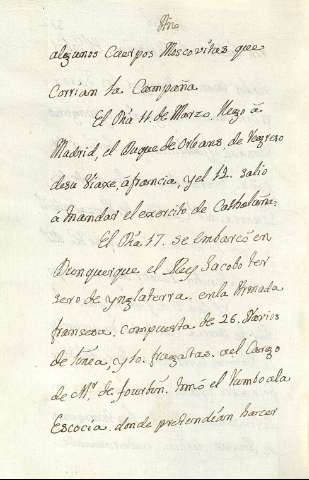 Año
algunos Cuerpos Moscovitas que
Corrian la Campaña
El Dia 11. de Marzo. llego â
Madrid, el Duque de Orleans de Regreso
de su Viaxe, â francia, y el 12. salio
â mandar el exercito de Cathaluña,
El Dia 17. se embarcò en
Dunquerque el Rey Jacobo ter
sero de Ynglaterra. en la Armada
fransesa. compuesta de 26. Navios
de linea, y 10. fragatas. a el Cargo
de Mr. de fourbin. tomó el Rumbo a la
Escocia. donde pretendian hacer